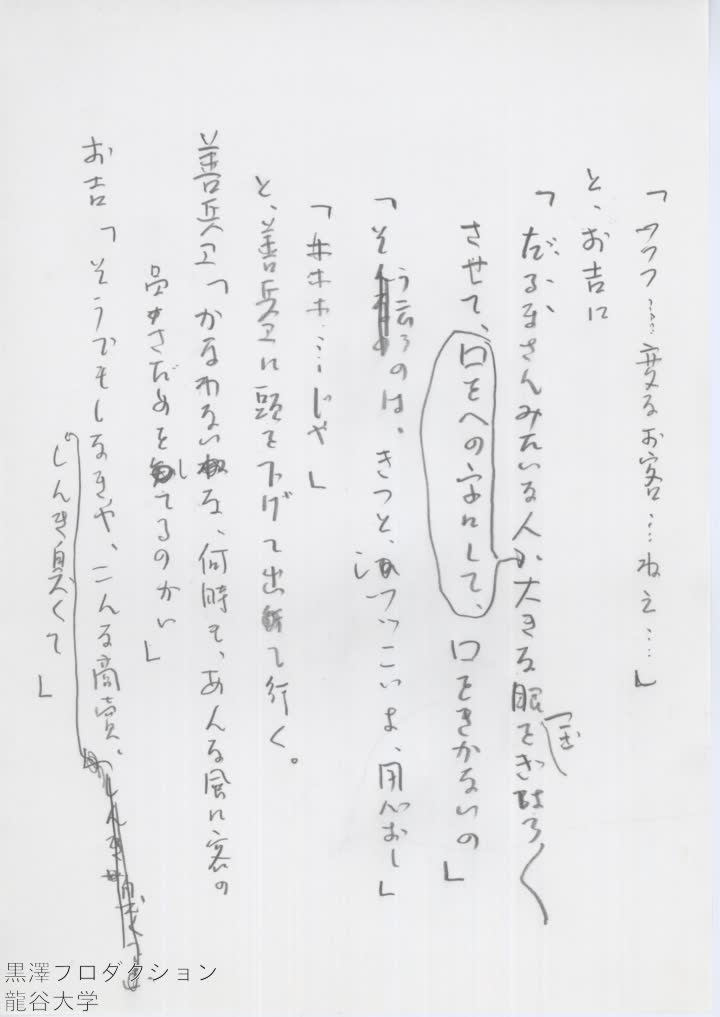 「フフフ……変なお客…ねえ…」
と、お吉に
「だるまさんみたいな人が大きな眼をぎょろ〳〵
させて、口をへの字にして、口をきかないの」
「そう云うのは。きつと、しつっこいよ、用心おし」
「ホホホ…じや」
と、善兵ヱに頭を下げて出て行く。
善兵ヱ「かなわないな、何時も、あんな風に客の
品さだめをしてるのかい」
お吉「そうでもしなきや、こんな商売、
しんき臭くて」
黒澤プロダクション
龍谷大学